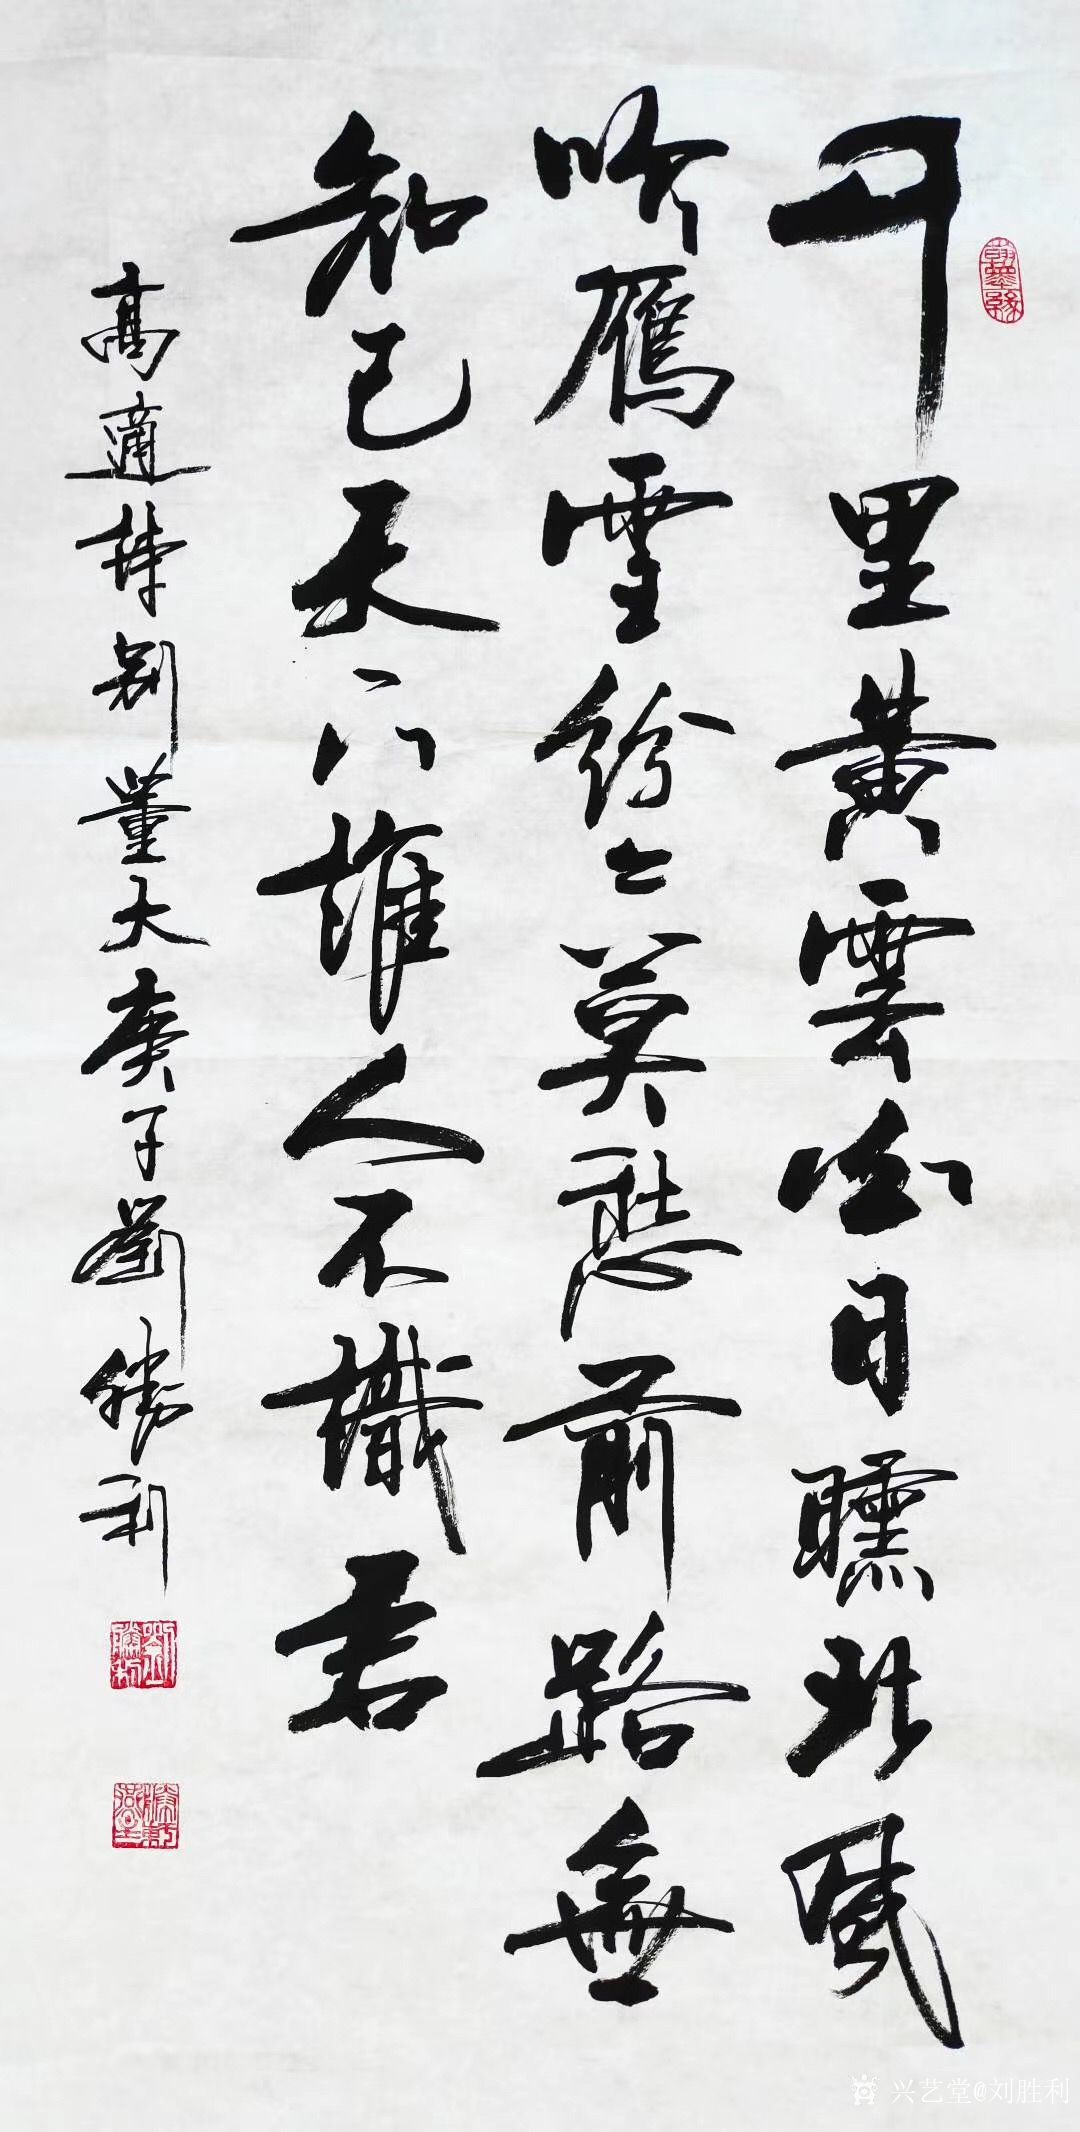 翰墨緣
千里黃雲白日曛北風
吹鴈雪紛々莫愁前路無
知己天下誰人不識君
高適詩別董大庚子劉勝利
劉勝利
兴艺堂@刘胜利